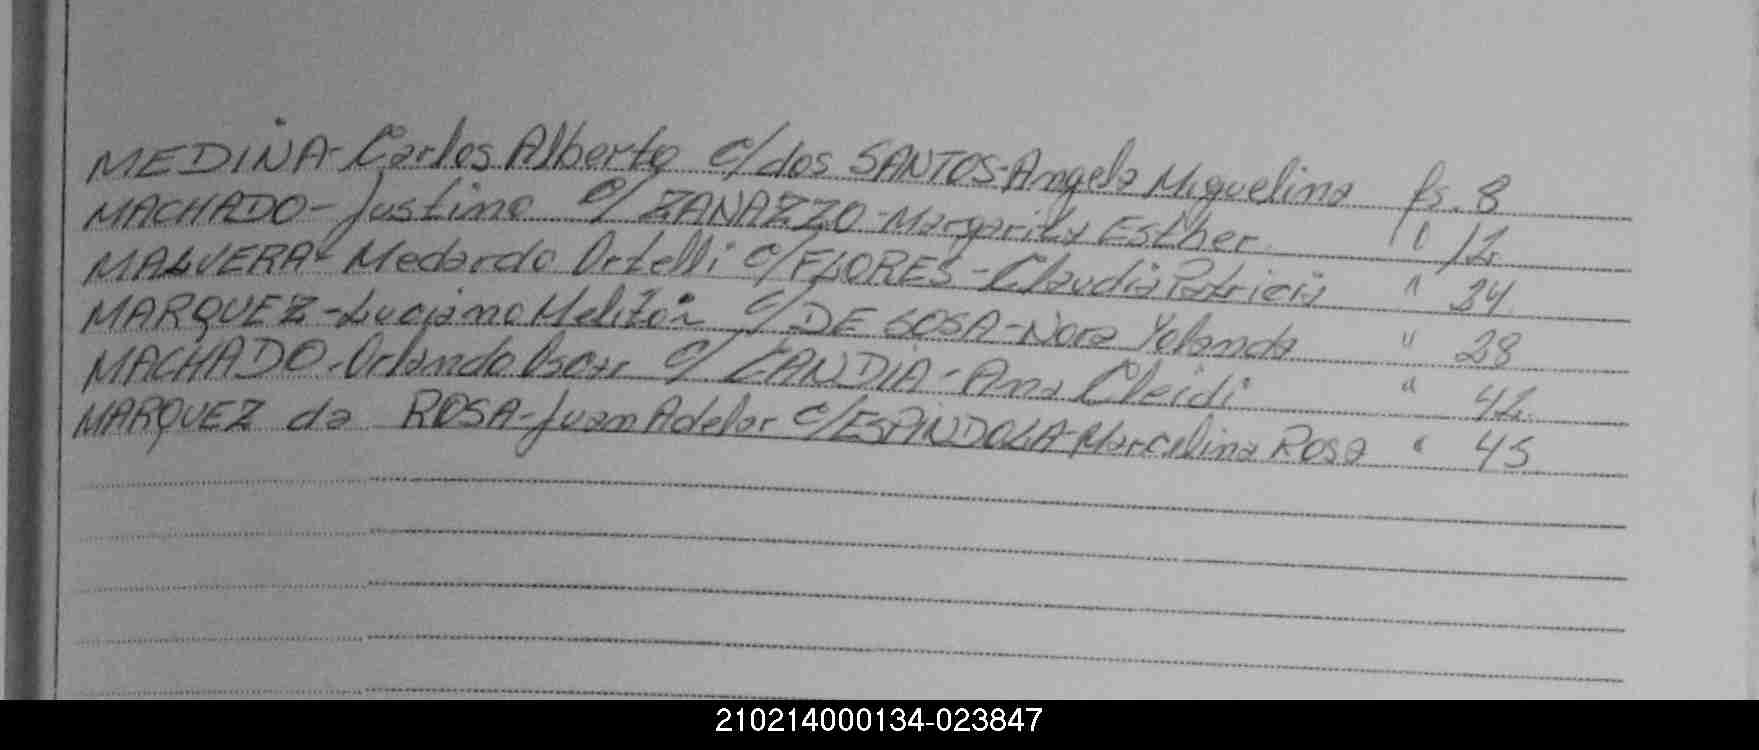 MEDINA-Carlos Alberto c/dos SANTOS-Angela Miguelina fs. 8
MACHADO-Justino c/ ZANAZZO-Margarita Esther " 12
MALVERA-Medardo Ortelli c/FLORES-Claudia Patricia " 24
MARQUEZ-Luciano Melitón c/ DE SOSA-Nora Yolanda " 28
MACHADO-Orlando Oscar c/ CANDIA-Ana Cleidi " 42
MARQUEZ da ROSA-Juan Adelar c/ESPINDOLA-Marcelina Rosa " 45
210214000134-023847